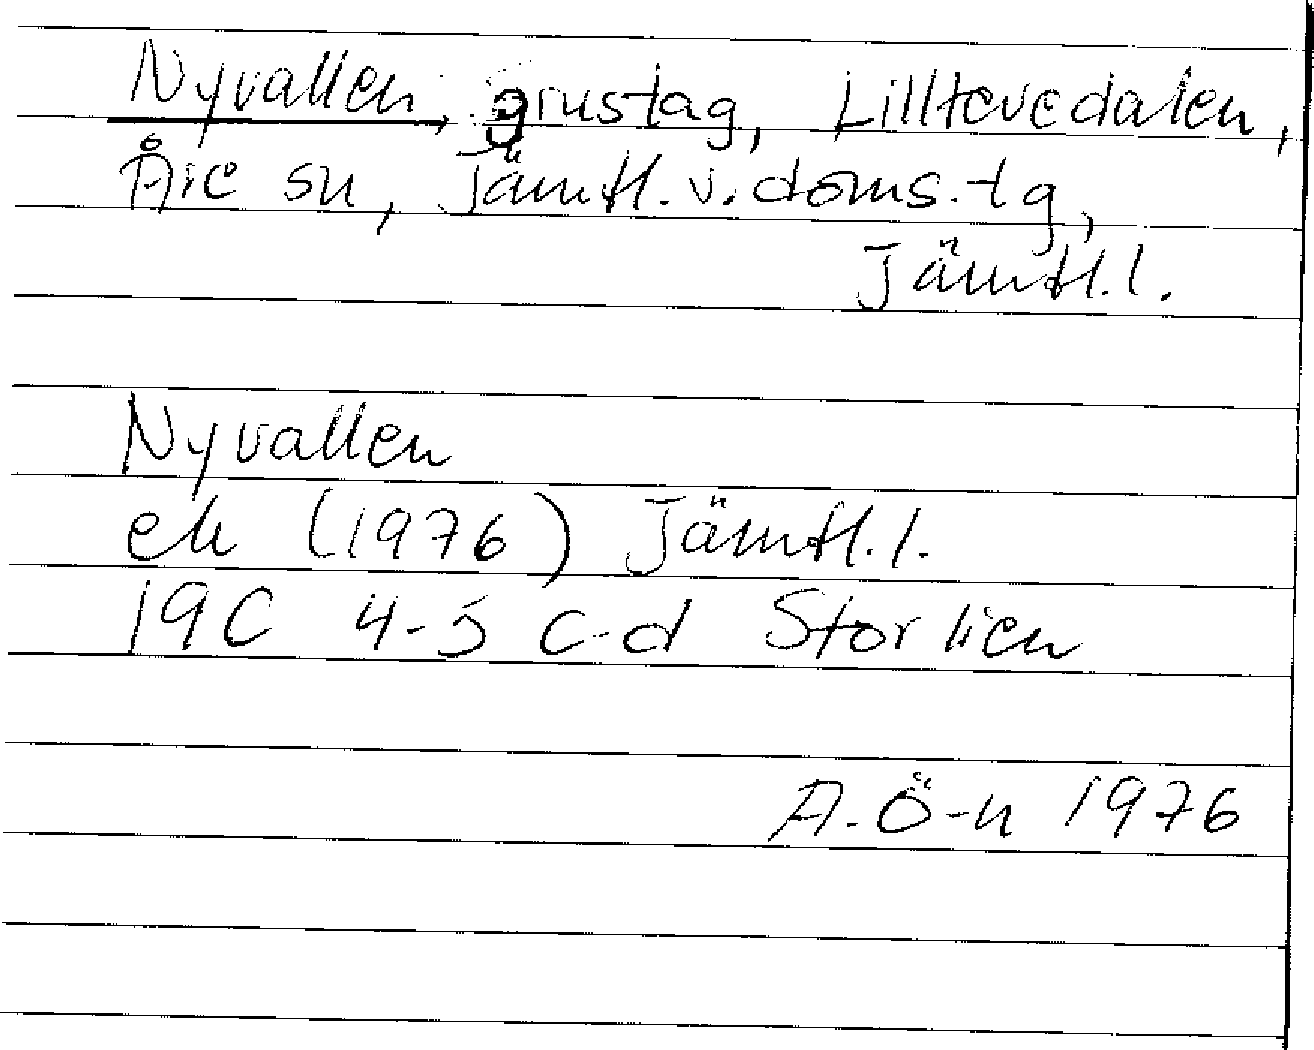 Nyvallen, grustag, Lilltevedalen,
Åre sn, Jämtl. v. doms. tg,
Jämtl. l.
Nyvallen
ek (1976) Jämtl. l.
19C 4-5 c-d Storlien
A. Ö-n 1976